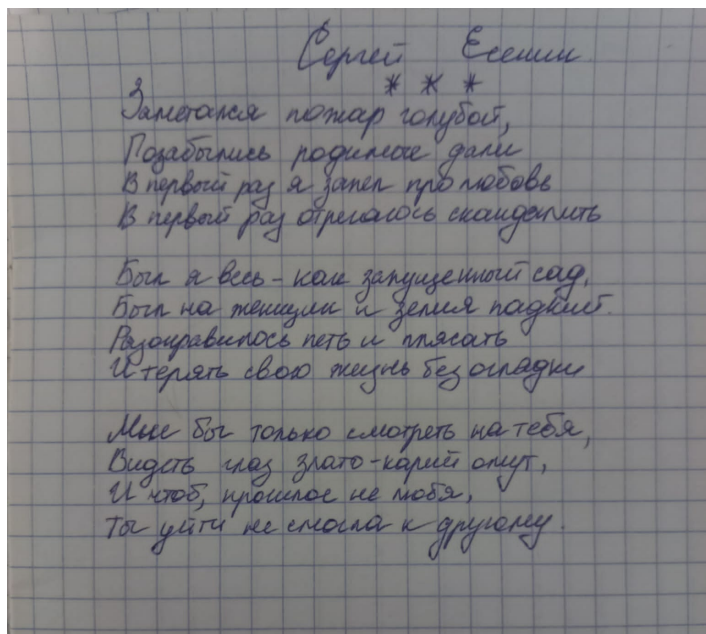 Сергей Есенин
* * *
Заметался пожар голубой,
Позабылись родимые дали
В первый раз я запел про любовь
В первый раз отрекаюсь скандалить
Был я весь - как запущенный сад,
Был на женщин и зелия падкий.
Разонравилось петь и плясать
И терять свою жизнь без оглядки
Мне бы только смотреть на тебя,
Видеть глаз злато-карий омут,
И чтоб, прошлое не любя,
Ты уйти не смогла к другому.